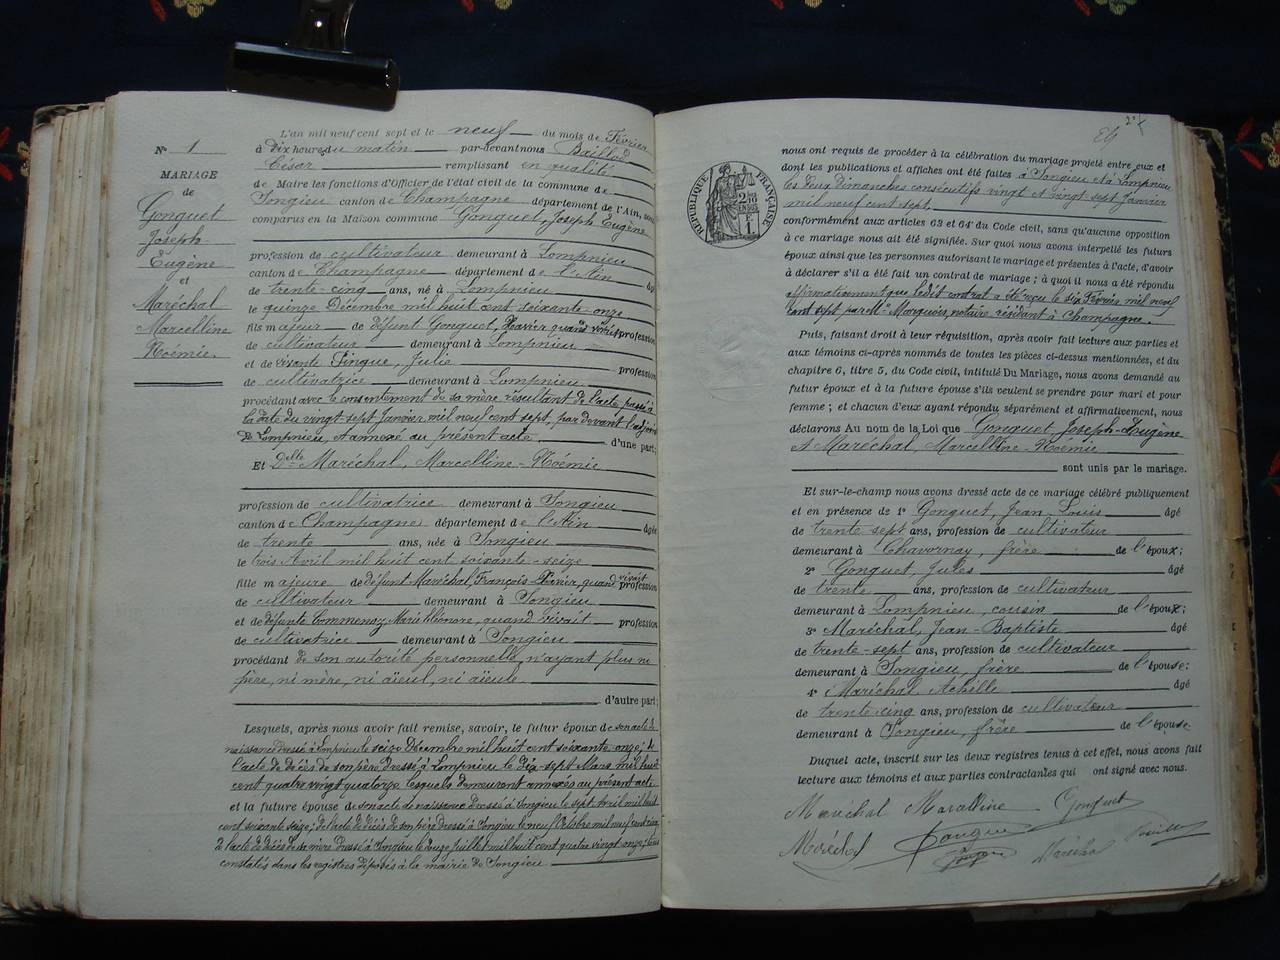 N° 1
MARIAGE
de
Gonguet
Joseph
Eugène
et
Maréchal
Marcelline
Noémie.
L'an mil neuf cent sept et le neuf du mois de Février
à dix heures du matin par-devant nous Baillod
César remplissant en qualité
de Maire les fonctions d'Officier de l'état civil de la commune de
Songieu canton de Champagne département de l'Ain, sont
comparus en la Maison commune Gonguet, Joseph Eugène
profession de cultivateur demeurant à Lompnieu
canton de Champagne département de l'Ain âgé
de trente-cinq ans, né à Lompnieu
le quinze Décembre mil huit cent soixante-onze
fils majeur de défunt Gonguet, Xavier quand vivait profession
de cultivateur demeurant à Lompnieu
et de vivante Pingue, Julie profession
de cultivatrice demeurant à Lompnieu
procédant avec le consentement de sa mère résultant de l'acte passé à
la date du vingt-sept Janvier mil neuf cent sept, par devant l'adjoint
de Lompnieu, et annexé au présent acte d'une part;
Et Delle Maréchal, Marcelline-Noémie
profession de cultivatrice demeurant à Songieu
canton de Champagne département de l'Ain âgée
de trente ans, née à Songieu
le trois Avril mil huit cent soixante-seize
fille majeure de défunt Maréchal, François Xavier, quand vivait profession
de cultivateur demeurant à Songieu
et de défunte Commenay, Marie Eléonore, quand vivait profession
de cultivatrice demeurant à Songieu
procédant de son autorité personnelle, n'ayant plus ni
père, ni mère, ni aïeul, ni aïeule
d'autre part;
Lesquels, après nous avoir fait remise, savoir, le futur époux de son acte de
naissance dressé à Lompnieu le seize Décembre mil huit cent soixante onze; de
l'acte de décès de son père dressé à Lompnieu le dix-sept Mars mil huit
cent quatre vingt quatorze lesquels demeurent annexés au présent acte
et la future épouse de son acte de naissance dressé à Songieu le sept Avril mil huit
cent soixante seize; de l'acte de décès de son père dressé à Songieu le neuf Octobre mil neuf cent
de l'acte de décès de sa mère dressé à Songieu le douze Juillet mil huit cent quatre vingt onze; tous
constatés dans les registres déposés à la mairie de Songieu
2e
RÉPUBLIQUE FRANÇAISE
2/10
EN SUS
1 F
nous ont requis de procéder à la célébration du mariage projeté entre eux et
dont les publications et affiches ont été faites à Songieu et à Lompnieu
les deux dimanches consécutifs vingt et vingt-sept Janvier
mil neuf cent sept
conformément aux articles 63 et 64 du Code civil, sans qu'aucune opposition
à ce mariage nous ait été signifiée. Sur quoi nous avons interpellé les futurs
époux ainsi que les personnes autorisant le mariage et présentes à l'acte, d'avoir
à déclarer s'il a été fait un contrat de mariage; à quoi il nous a été répondu
affirmativement que ledit contrat a été reçu le six Février mil neuf
cent sept par Me Marquois, notaire résidant à Champagne.
Puis, faisant droit à leur réquisition, après avoir fait lecture aux parties et
aux témoins ci-après nommés de toutes les pièces ci-dessus mentionnées, et du
chapitre 6, titre 5, du Code civil, intitulé Du Mariage, nous avons demandé au
futur époux et à la future épouse s'ils veulent se prendre pour mari et pour
femme; et chacun d'eux ayant répondu séparément et affirmativement, nous
déclarons Au nom de la Loi que Gonguet Joseph-Eugène
et Maréchal, Marcelline-Noémie
sont unis par le mariage.
Et sur-le-champ nous avons dressé acte de ce mariage célébré publiquement
et en présence de 1° Gonguet, Jean-Louis âgé
de trente sept ans, profession de cultivateur
demeurant à Chavornay, frère de l'époux;
2° Gonguet Jules âgé
de trente ans, profession de cultivateur
demeurant à Lompnieu, cousin de l'époux;
3° Maréchal, Jean-Baptiste âgé
de trente-sept ans, profession de cultivateur
demeurant à Songieu, frère de l'épouse;
4° Maréchal Achille âgé
de trente cinq ans, profession de cultivateur
demeurant à Songieu, frère de l'épouse
Duquel acte, inscrit sur les deux registres tenus à cet effet, nous avons fait
lecture aux témoins et aux parties contractantes qui ont signé avec nous.
Maréchal Marcelline Gonguet
Maréchal Gonguet Gonguet Maréchal